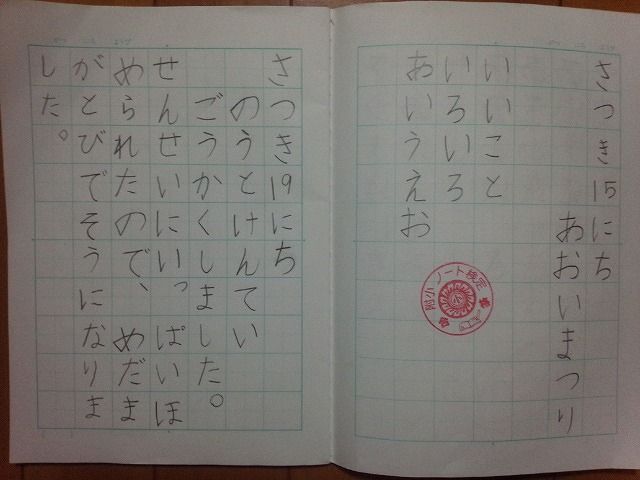 さつき15にち
あおいまつり
いいこと
いろいろ
あいうえお
附小ノート検定
合
さつき19にち
のうとけんてい
ごうかくしました。
せんせいにいっぱいほ
められたので、めだま
がとびでそうになりま
した。